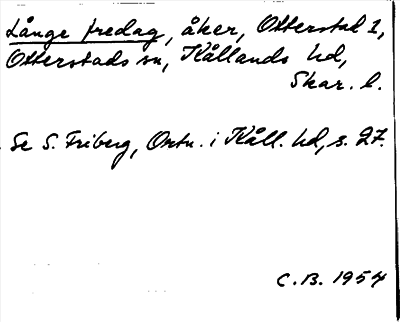 Långe fredag, åker, Otterstad 1,
Otterstads sn, Kållands hd,
Skar. l.
Se S. Friberg, Ortn. i Kåll. hd, s. 27.
C.B. 1954